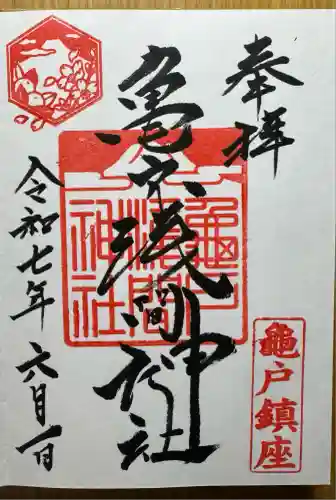 奉拝
亀戸浅間神社
令和七年 六月一日
亀戸浅間神社
亀戸鎮座